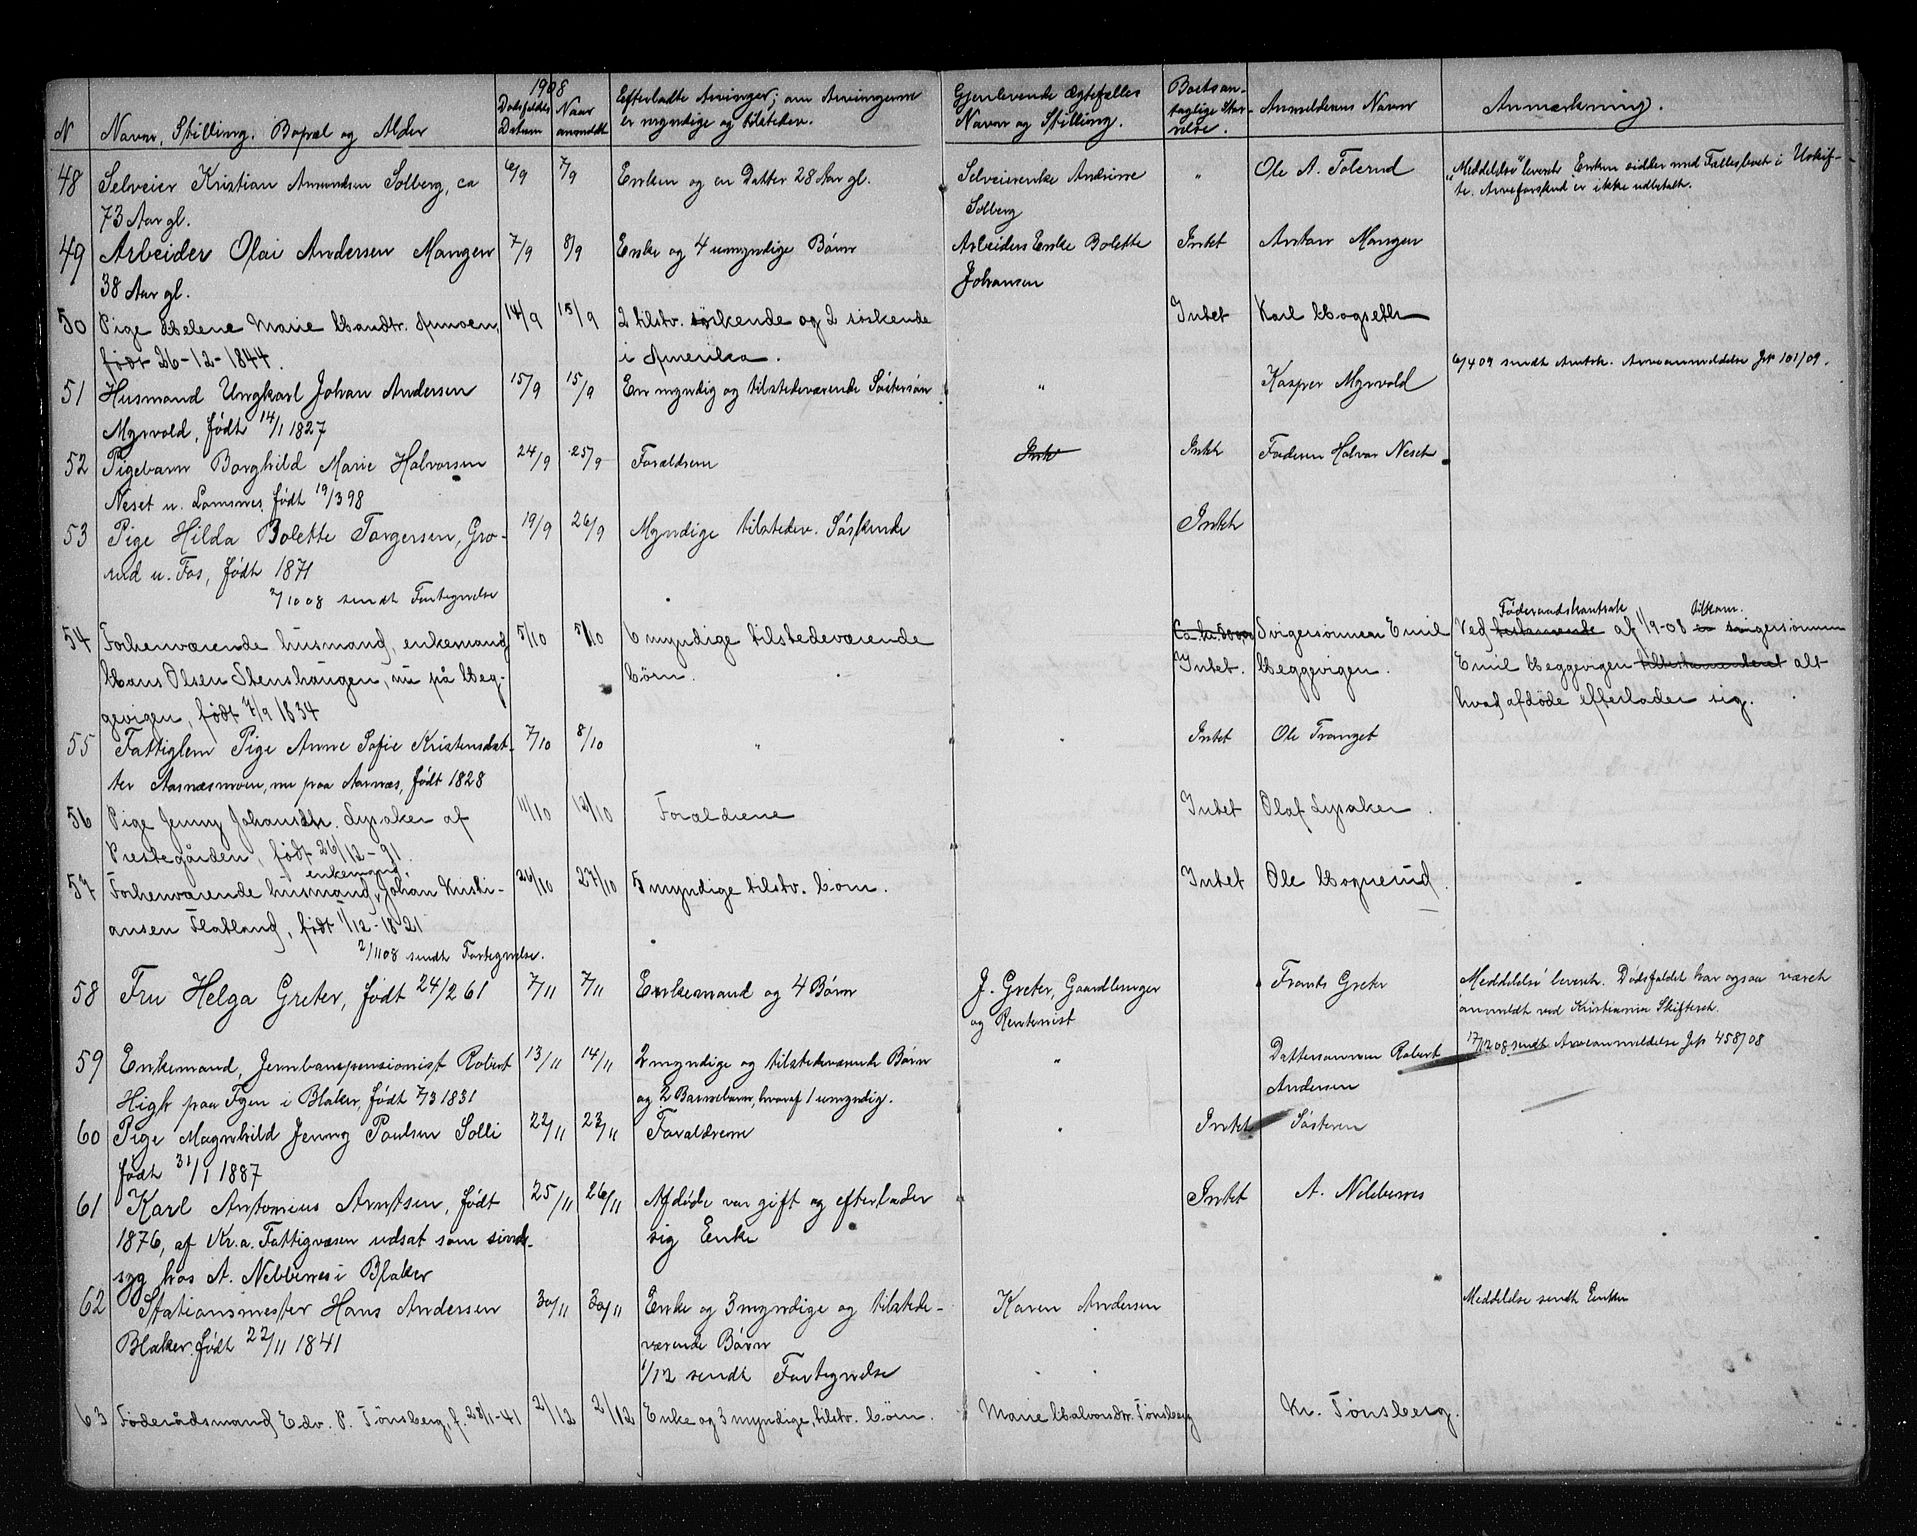 1908
N Navn, Stilling, Bopæl og Alder Dødsfaldets Datum Naar anmeldt Efterladte Arvinger; om Arvingerne er myndige og tilstedev. Gjenlevende Ægtefælles Navn og Stilling. Boets antagelige Størrelse. Anmelderens Navn Anmerkning.
48 Selveier Kristian Amundsen Solberg, ca 6/9 7/9 Enken og en Datter 28 Aar gl. Selveierenke Andrine " Ole A. Tolerud "Meddelse" leveret. Enken sidder med Fællesboet i Uskif-
73 Aar gl. Solberg te. Arveforskud er ikke udbetalt.
49 Arbeider Olai Andersen Mangen 7/9 8/9 Enke og 4 umyndige Børn Arbeiders Enke Bolette Intet Anton Mangen
38 Aar gl. Johansen
50 Pige Helene Marie Hansdtr. Amoen, 14/9 15/9 2 tilstv. søskende og 2 søskende Intet Karl Hogseth
født 26-12-1844. i Amerika.
51 Husmand Ungkarl Johan Andersen 15/9 15/9 En myndig og tilstedeværende Søstersøn " Kasper Myrvold 6/4 09 sendt Amtsk. Arveanmeldelse Jr 101/09.
Myrvold, født 14/1 1827
52 Pigebarn Borghild Marie Halvorsen 24/9 25/9 Forældrene Intet Faderen Halvor Neset
Neset u. Lomsnes, født 19/3 98
53 Pige Hilda Bolette Torgersen, Gro- 19/9 26/9 Myndige tilstedev. Søskende Intet
rud u. Fos, født 1871
2/10 08 sendt Fortegnelse
54 Forhenværende husmand, enkemand 5/10 5/10 6 myndige tilstedeværende Svigersønnen Emil Ved Føderaadskontrakt af 1/9-08 tilkom. svigersønnen
Hans Olsen Stenshaugen, nu på Heg- børn. Intet. Heggevigen. Emil Heggevigen alt
gevigen, født 7/9 1834 hvad afdøde efterlader sig.
55 Fattiglem Pige Anne Sofie Kristensdat- 7/10 8/10 " Intet Ole Tranget
ter Aasnæsmoen, nu paa Aarnæs, født 1828
56 Pige Jenny Johansdtr. Lysaker af 11/10 12/10 Forældrene Intet Olaf Lysaker
Prestegården, født 26/12-91.
57 Forhenværende husmand, enkemand, Johan Kristi- 26/10 27/10 5 myndige tilstv. børn. Intet Ole Hognerud.
ansen Flatland, født 1/12-1821
2/11 08 sendt Fortegnelse.
58 Fru Helga Greter, født 24/2 61 7/11 7/11 Enkemand og 4 Børn J. Greter, Gaardbruger Frants Greter Meddelelse leveret. Dødsfaldet har ogsaa været
og Rentenist anmeldt ved Kristiania Skifteret.
59 Enkemand, Jernbanepensionist Robert 13/11 14/11 2 myndige og tilstedeværende Børn " Dattersønnen Robert 17/12 08 sendt Arveanmeldelse Jr 458/08
High paa Egen i Blaker, født 7/3 1831 og 2 Barnebarn, hvoraf 1 umyndig. Andersen
60 Pige Magnhild Jenny Paulsen Solli 22/11 23/11 Forældrene Intet Søsteren
født 31/1 1887
61 Karl Antonius Arntsen, født 25/11 26/11 Afdøde var gift og efterlader Intet A. Nebbenes
1876, af Kr.a. Fattigvæsen udsat som sinds- sig Enke
syg hos A. Nebbenes i Blaker
62 Stationsmester Hans Andersen 30/11 30/11 Enke og 3 myndige og tilstede- Karen Andersen Meddelelse sendt Enken
Blaker, født 22/11 1841 værende Børn
1/12 sendt Fortegnelse
63 Føderådsmand Edv. P. Tønsberg, f. 28/1-41 2/12 2/12 Enke og 3 myndige, tilstv. børn. Marie Halvorsdtr. Tønsberg Kr. Tønsberg.